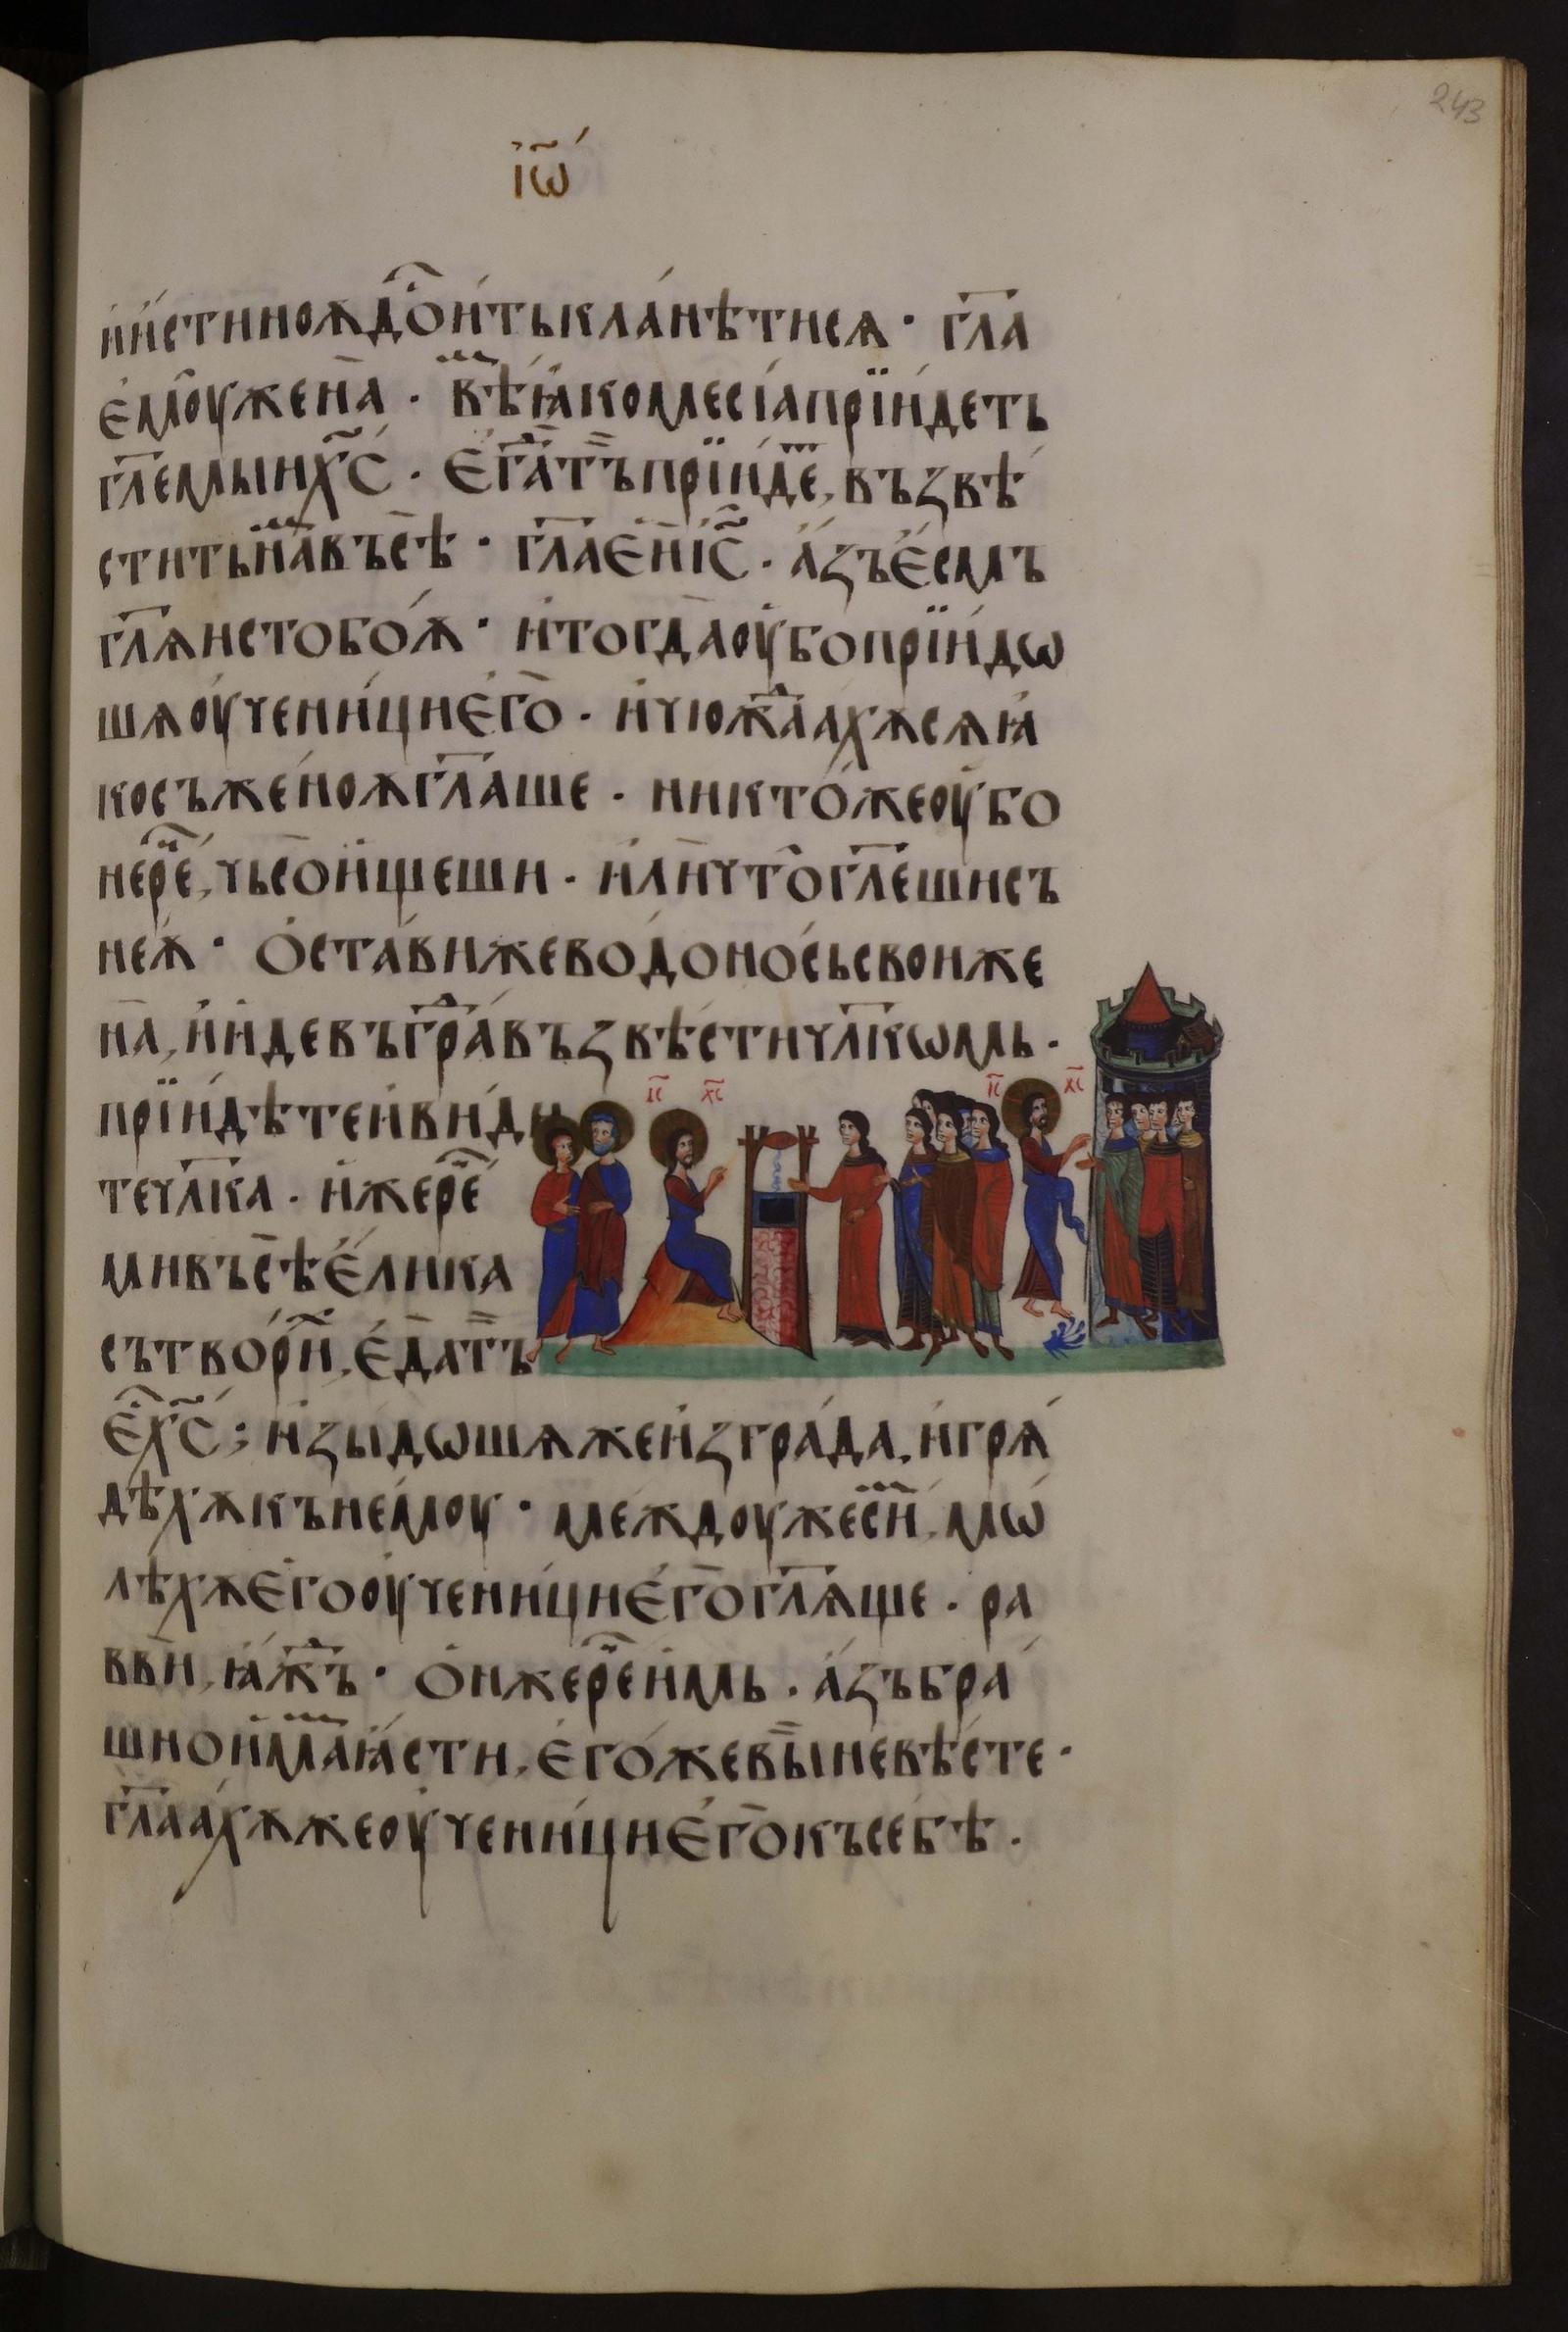 243
і҃ѡ
и҆и҆стиноѫдо̑и҆тькла́нѣтисѧ · гл҃а
є҆моуженⷶа · вѣⷨꙗ҆комесі́апрїи́деть
гл҃емыих҃с · є҆гⷣатⷪъпрїи́деⷮ, възвѣ
ститьнⷨавъсⷶѣ · гл҃ає҆ни҃с · а҆́зъє҆́смъ
гл҃ѧистобо́ѫ · и҆тогдⷶаоу҆бопрїи́дѡ
шѧоу҆чени́ции҆є҆гⷪо · и҆чюжⷣаахѫсѧꙗ҆
косъжено́ѫгл҃аше · никто́жеоу҆бо
нерⷱе, чьсои҆́щеши · и҆лⷩичтогл҃ешисъ
не́ѫ · ѻ҆ста́вижеводоно́сьсвоиже
нⷶа, и҆и́девъгрⷣавъзвѣ́стичл҃кѡмь ·
прїи́дѣтеи҆ви́ди
течл҃ка · и҆жерⷱе
мивъсⷶѣє҆ли́ка
сътво́рⷯи, є҆дⷶатⷪъ
є҆х҃с ; и҆зы́дѡшѧжеи҆згра́да, и҆грѧ́
дѣхѫкънемоу · междоужесⷨи, мѡ
лѣхѫє҆гооу҆чени́ции҆є҆гⷪогл҃ѧще · ра
ввⷩи, ꙗ҆жⷣъ · ѻ҆нжерⷱеи҆мь · а҆́зъбра́
шнои҆мⷨаꙗ҆́сти, є҆го́жевы̀невѣ́сте ·
гл҃аахѫжеоу҆чени́ции҆є҆гⷪокъсебѣ .
і҃с х҃с
і҃с х҃с